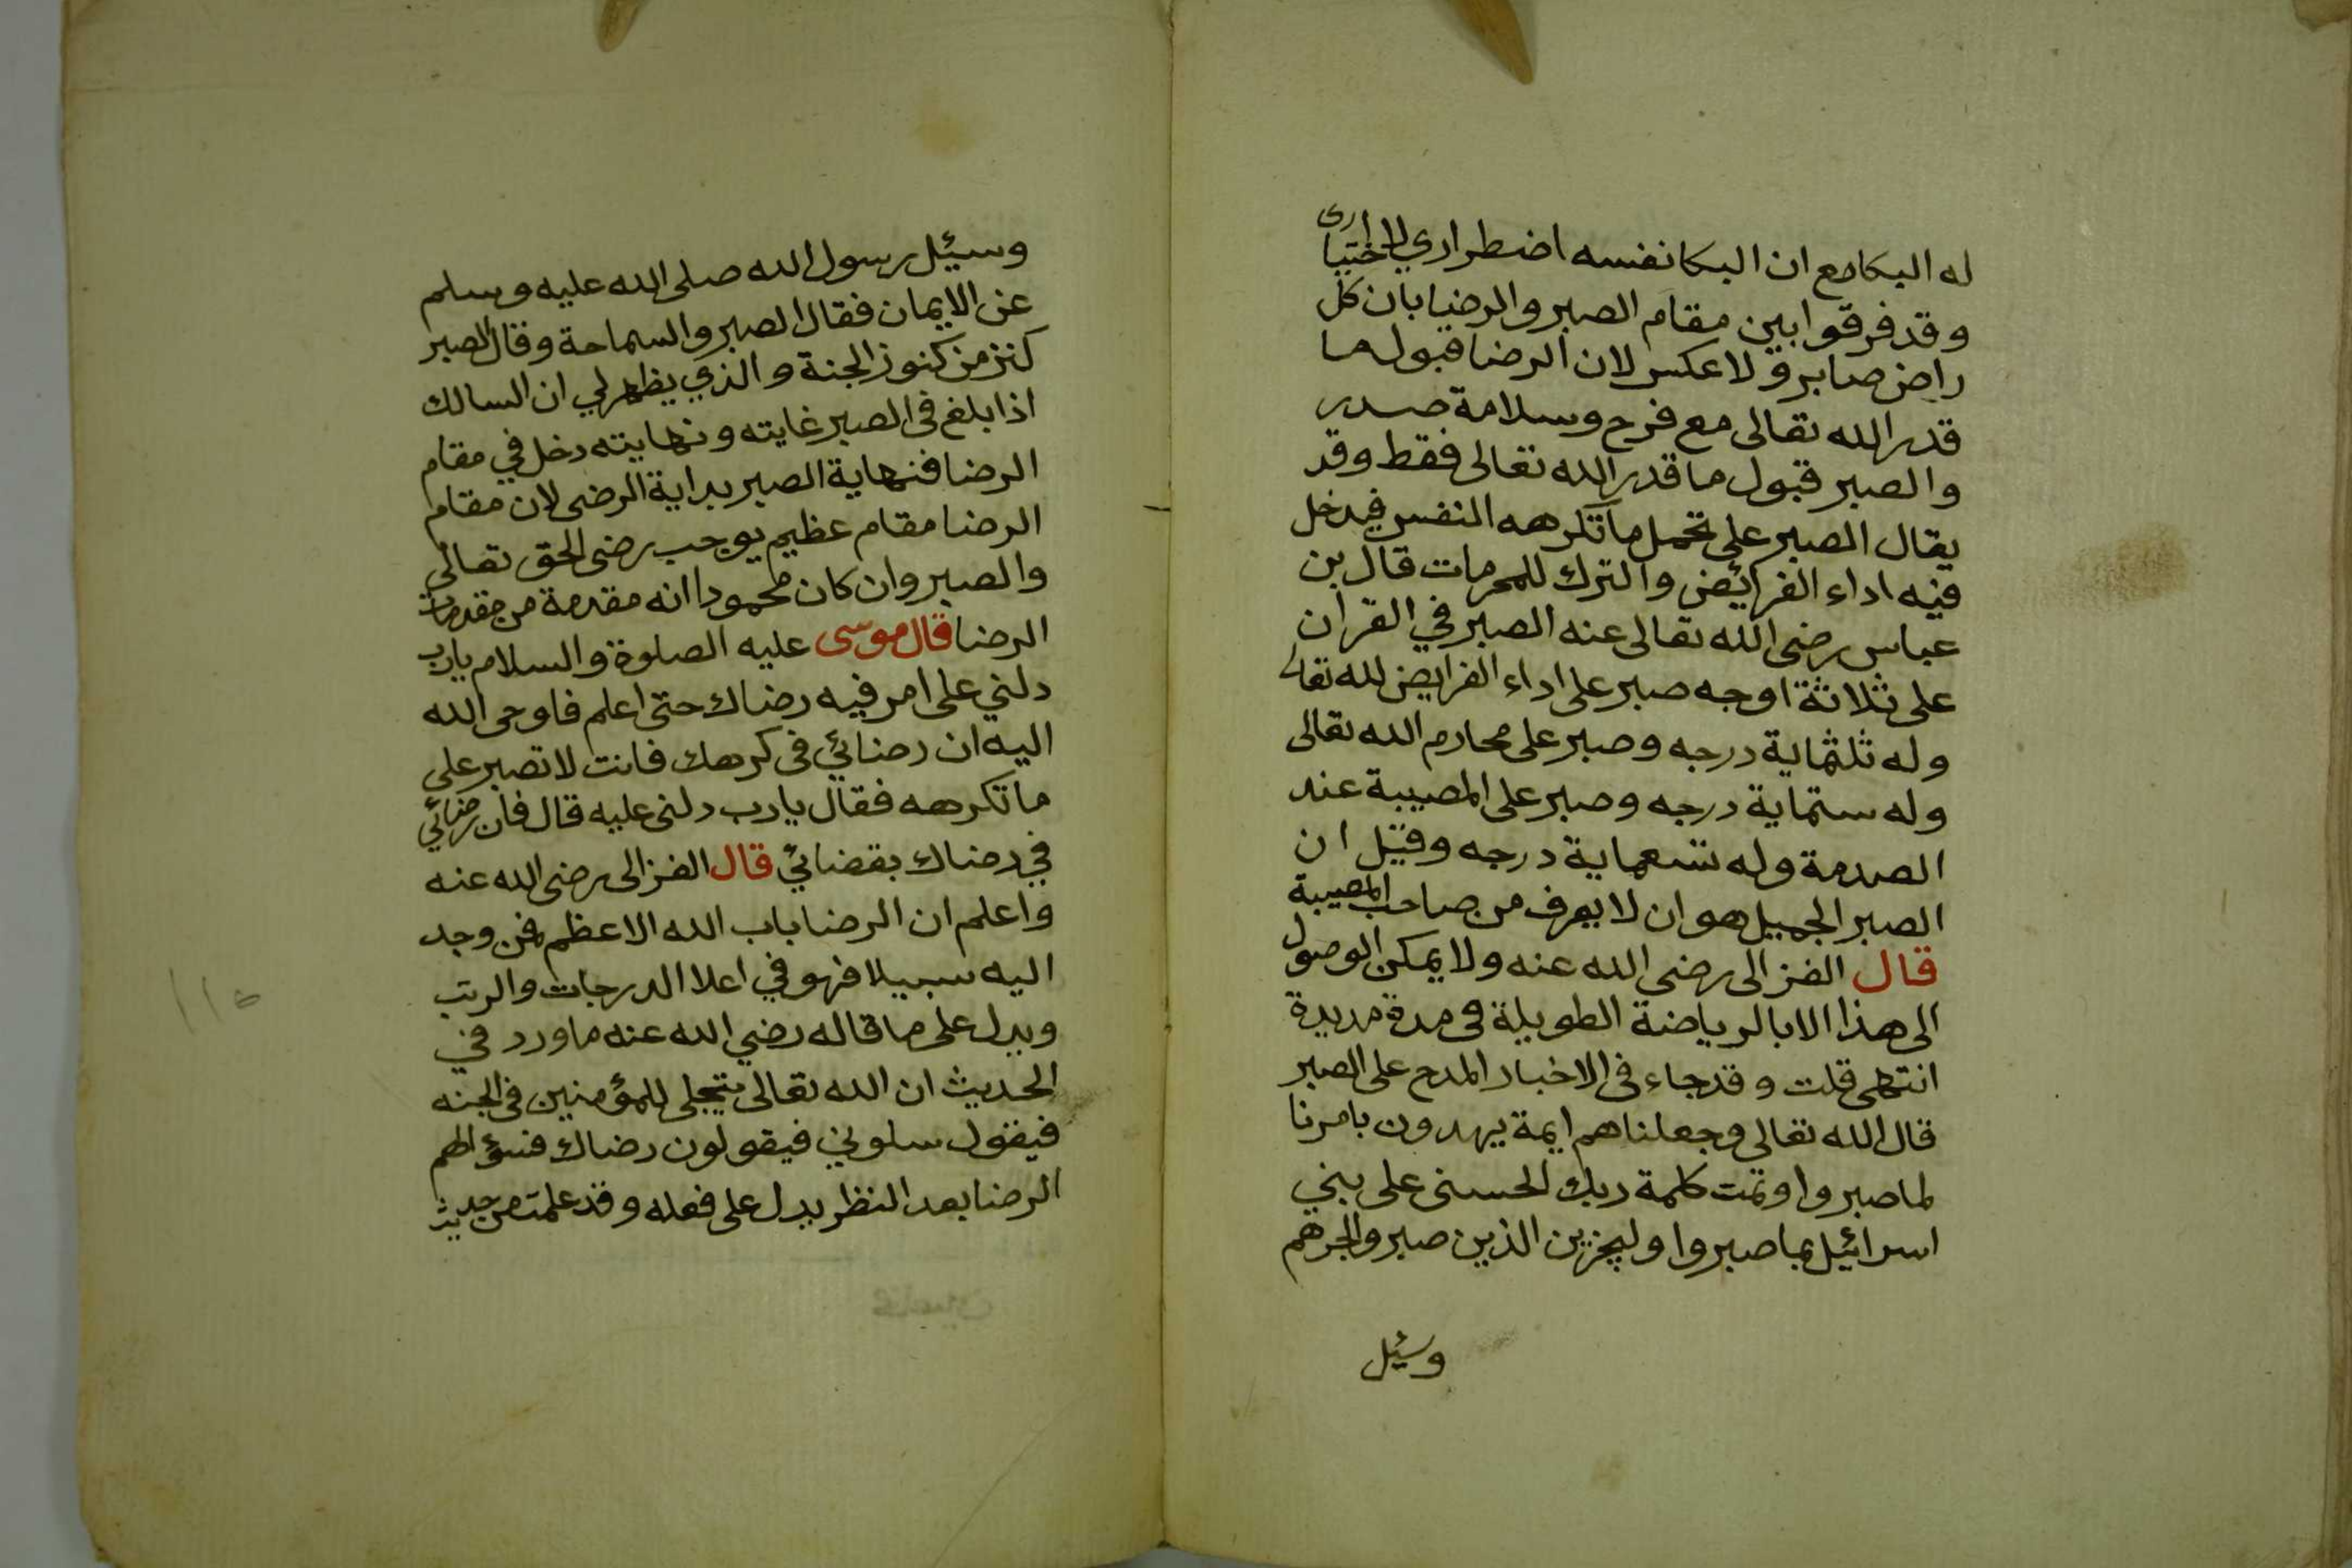 له البكا مع ان البكا نفسه اضطراري لا اختيارى
وقد فرقوا بين مقام الصبر والرضا بان كل
راض صابر ولا عكس لان الرضا قبول ما
قدر الله تعالى مع فرح وسلامة صدر
والصبر قبول ما قدر الله تعالى فقط وقد
يقال الصبر على تحمل ما تكرهه النفس فيدخل
فيه اداء الفرائض والترك للمحرمات قال بن
عباس رضى الله تعالى عنه الصبر في القران
على ثلاثة اوجه صبر على اداء الفرايض لله تعالى
وله ثلثماية درجه وصبر على محارم الله تعالى
وله ستماية درجه وصبر على المصيبة عند
الصدمة وله تسعماية درجه وقيل ان
الصبر الجميل هو ان لا يعرف من صاحب المصيبة
قال الغزالى رضى الله عنه ولا يمكن الوصول
الى هذا الا بالرياضة الطويلة فى مدة مديدة
انتهى قلت وقد جاء فى الاخبار المدح على الصبر
قال الله تعالى وجعلناهم ايمة يهدون بامرنا
لما صبروا وتمت كلمة ربك الحسنى على بني
اسرائيل بما صبروا وليجزين الذين صبروا اجرهم
وسئيل
وسئيل رسول الله صلى الله عليه وسلم
عن الايمان فقال الصبر والسماحة وقال الصبر
كنز من كنوز الجنة والذي يظهر لي ان السالك
اذا بلغ فى الصبر غايته ونهايته دخل في مقام
الرضا فنهاية الصبر بداية الرضى لان مقام
الرضا مقام عظيم يوجب رضى الحق تعالى
والصبر وان كان محمودا انه مقدمة من مقدمات
الرضا قال موسى عليه الصلوة والسلام يارب
دلني على امر فيه رضاك حتى اعلم فاوحى الله
اليه ان رضائي فى كرهك فانت لا تصبر على
ما تكرهه فقال يارب دلنى عليه قال فان رضائي
في رضاك بقضائي قال الغزالى رضى الله عنه
واعلم ان الرضا باب الله الاعظم فمن وجد
اليه سبيلا فهو في اعلا الدرجات والرتب
ويدل على ما قاله رضي الله عنه ما ورد في
الحديث ان الله تعالى يتجلى للمؤمنين فى الجنه
فيقول سلوني فيقولون رضاك فسؤالهم
الرضا بعد النظر يدل على فعله وقد علمت من حديث
١١٥